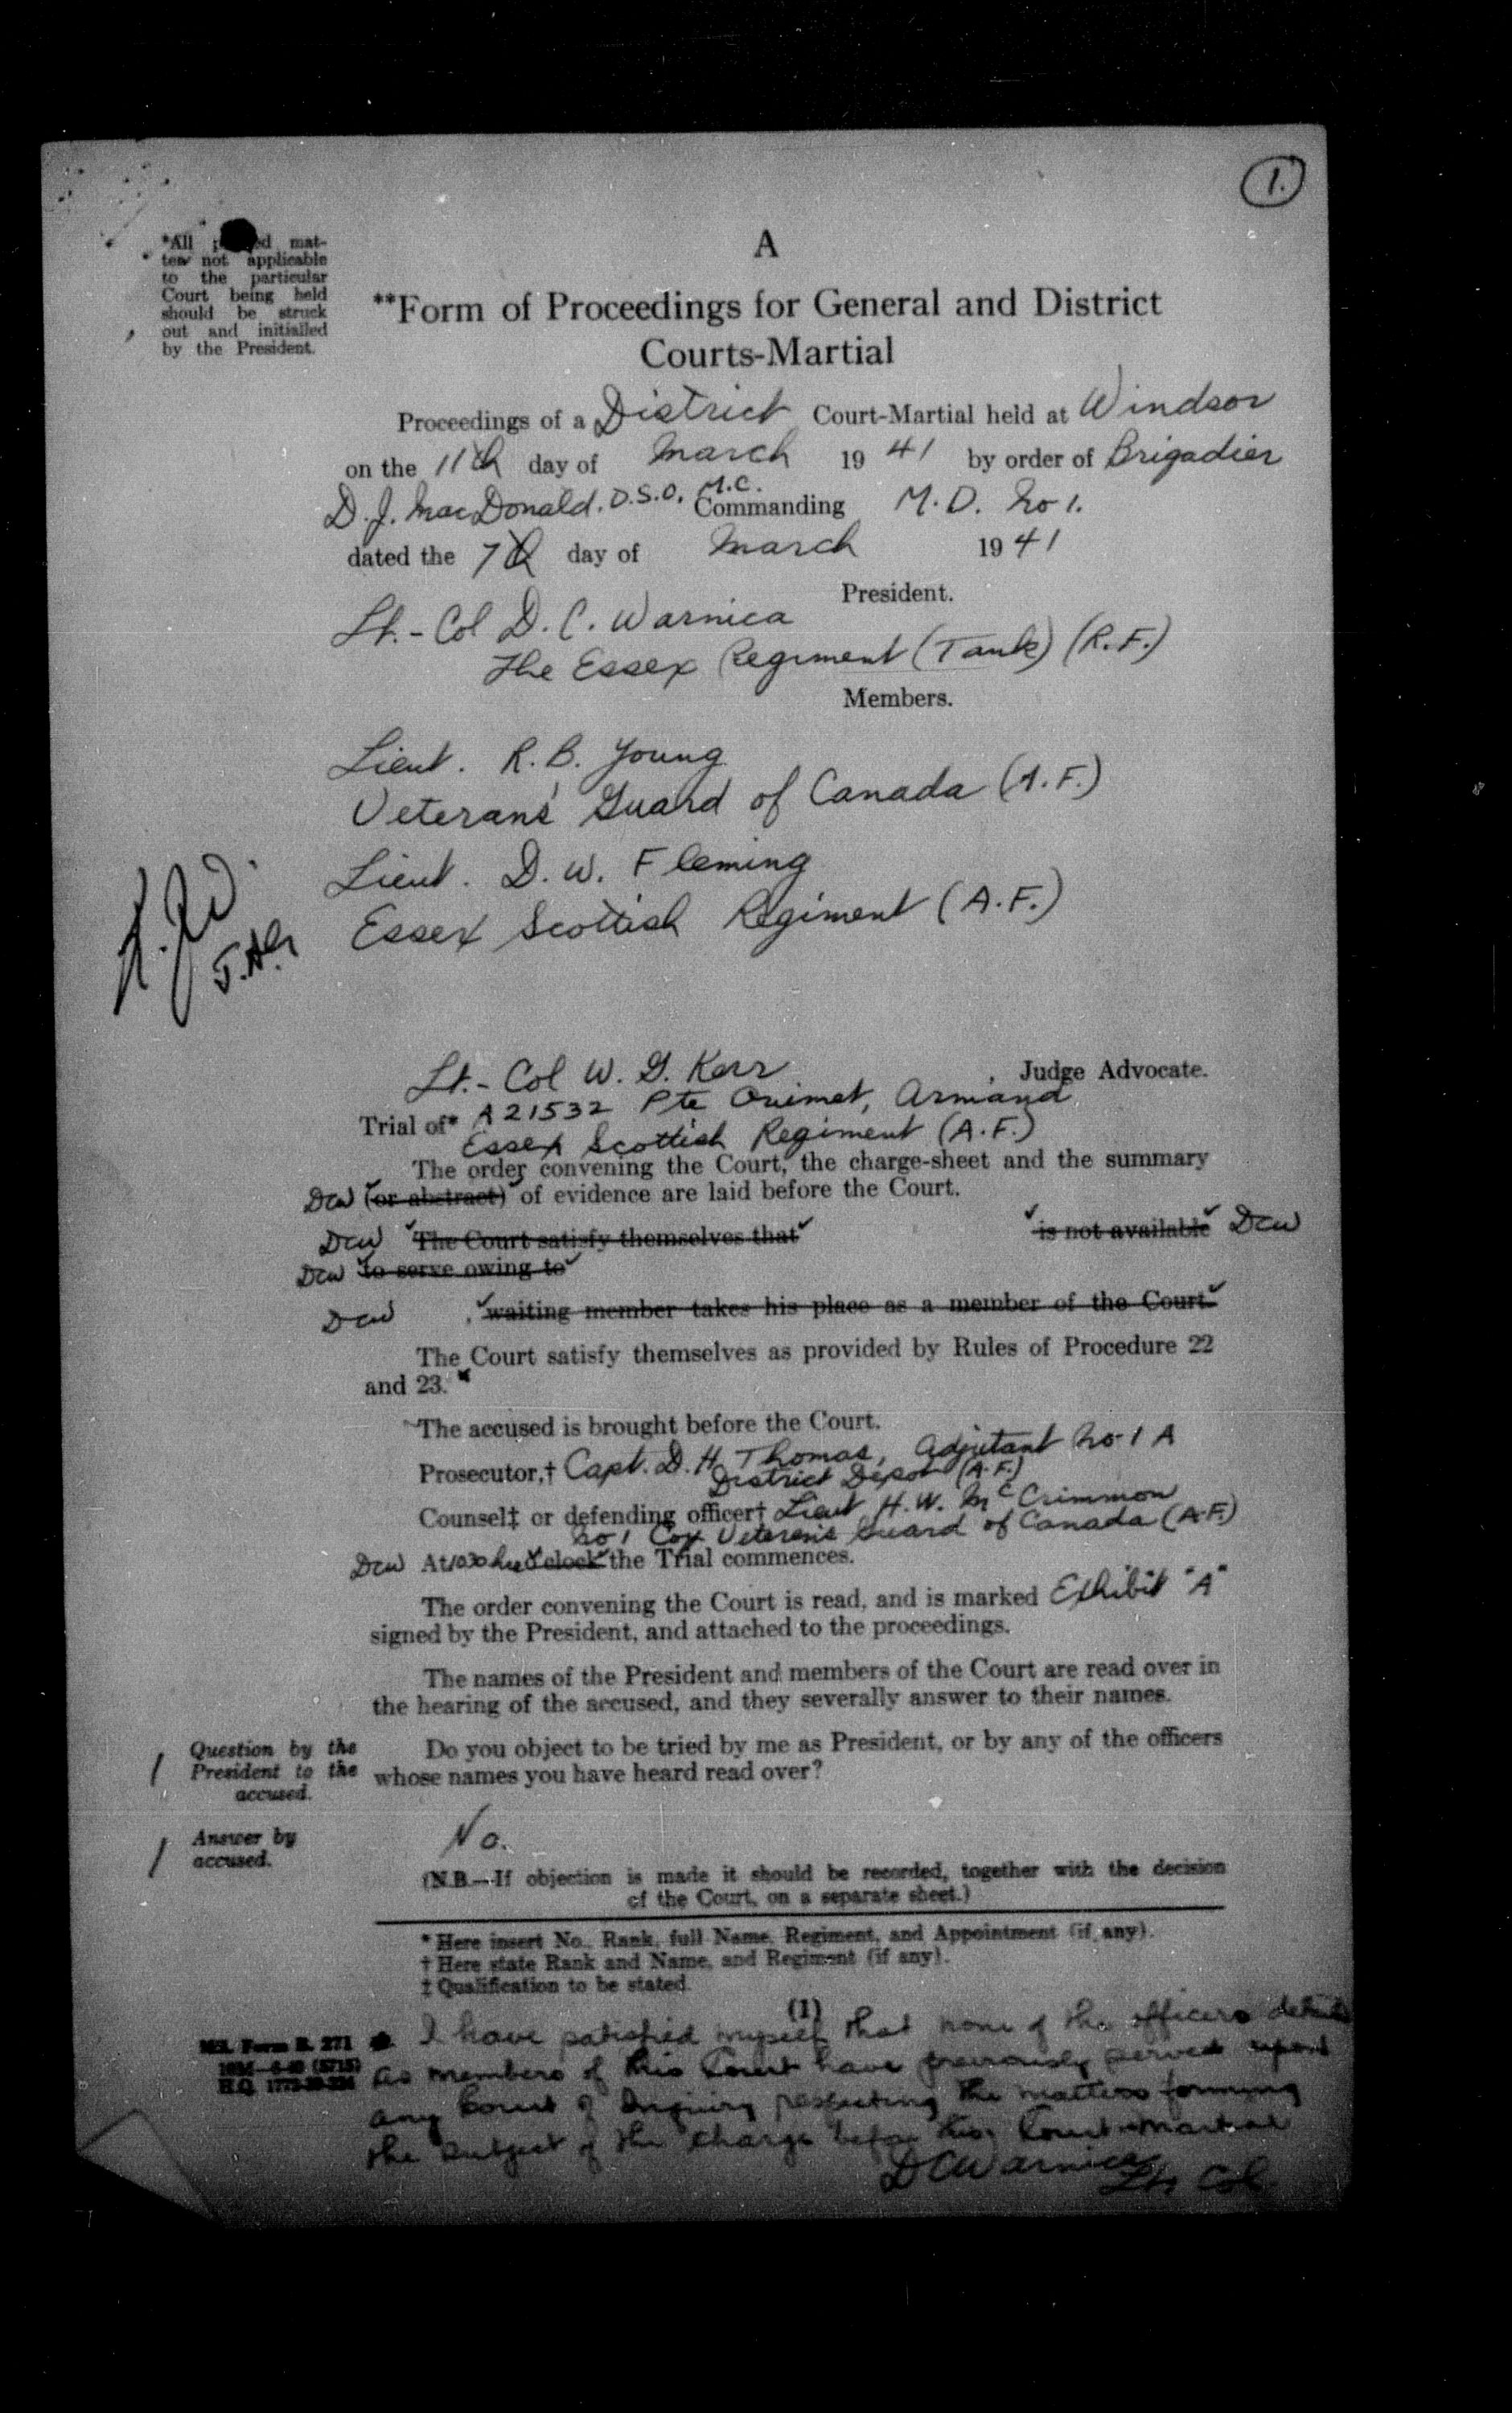 1.
*All mat-
ter not applicable
to the particular
Court being held
should be struck
out and initialled
by the President.
A
**Form of Proceedings for General and District
Courts-Martial
Proceedings of a District Court-Martial held at Windsor
on the 11th day of March 1941 by order of Brigadier
D. J. MacDonald, D.S.O. M.C. Commanding M.D. No 1.
dated the 7th day of March 1941
President.
Lt.-Col D. C. Warnica
The Essex Regiment (Tank) (R.F.)
Members.
Lieut. R. B. Young
Veteran's Guard of Canada (A.F.)
Lieut. D. W. Fleming
Essex Scottish Regiment (A.F.)
Lt.-Col W. G. Kerr Judge Advocate.
Trial of* A21532 Pte Ouimet, Armand
Essex Scottish Regiment (A.F.)
The order convening the Court, the charge-sheet and the summary
DCW (or abstract) of evidence are laid before the Court.
DCW The Court satisfy themselves that is not available DCW
DCW to serve owing to
DCW , waiting member takes his place as a member of the Court
The Court satisfy themselves as provided by Rules of Procedure 22
and 23.
The accused is brought before the Court.
Prosecutor,† Capt. D. H. Thomas, Adjutant No 1 A
District Depot (A.F.)
Counsel‡ or defending officer† Lieut H. W. McCrimmon
No 1 Coy Veteran's Guard of Canada (A.F.)
DCW At 1030 hrs o'clock the Trial commences.
The order convening the Court is read, and is marked Exhibit "A"
signed by the President, and attached to the proceedings.
The names of the President and members of the Court are read over in
the hearing of the accused, and they severally answer to their names.
Question by the
President to the
accused.
Do you object to be tried by me as President, or by any of the officers
whose names you have heard read over?
Answer by
accused.
No.
(N.B.—If objection is made it should be recorded, together with the decision
of the Court, on a separate sheet.)
* Here insert No., Rank, full Name, Regiment, and Appointment (if any).
† Here state Rank and Name, and Regiment (if any).
‡ Qualification to be stated.
(1)
Mil. Form B. 271
H.Q. 1772-39-
I have satisfied myself that none of the officers
as members of this Court have previously served upon
any Court of Inquiry respecting the matters forming
the subject of the charge before this Court-Martial
DCWarnica
Lt Col.